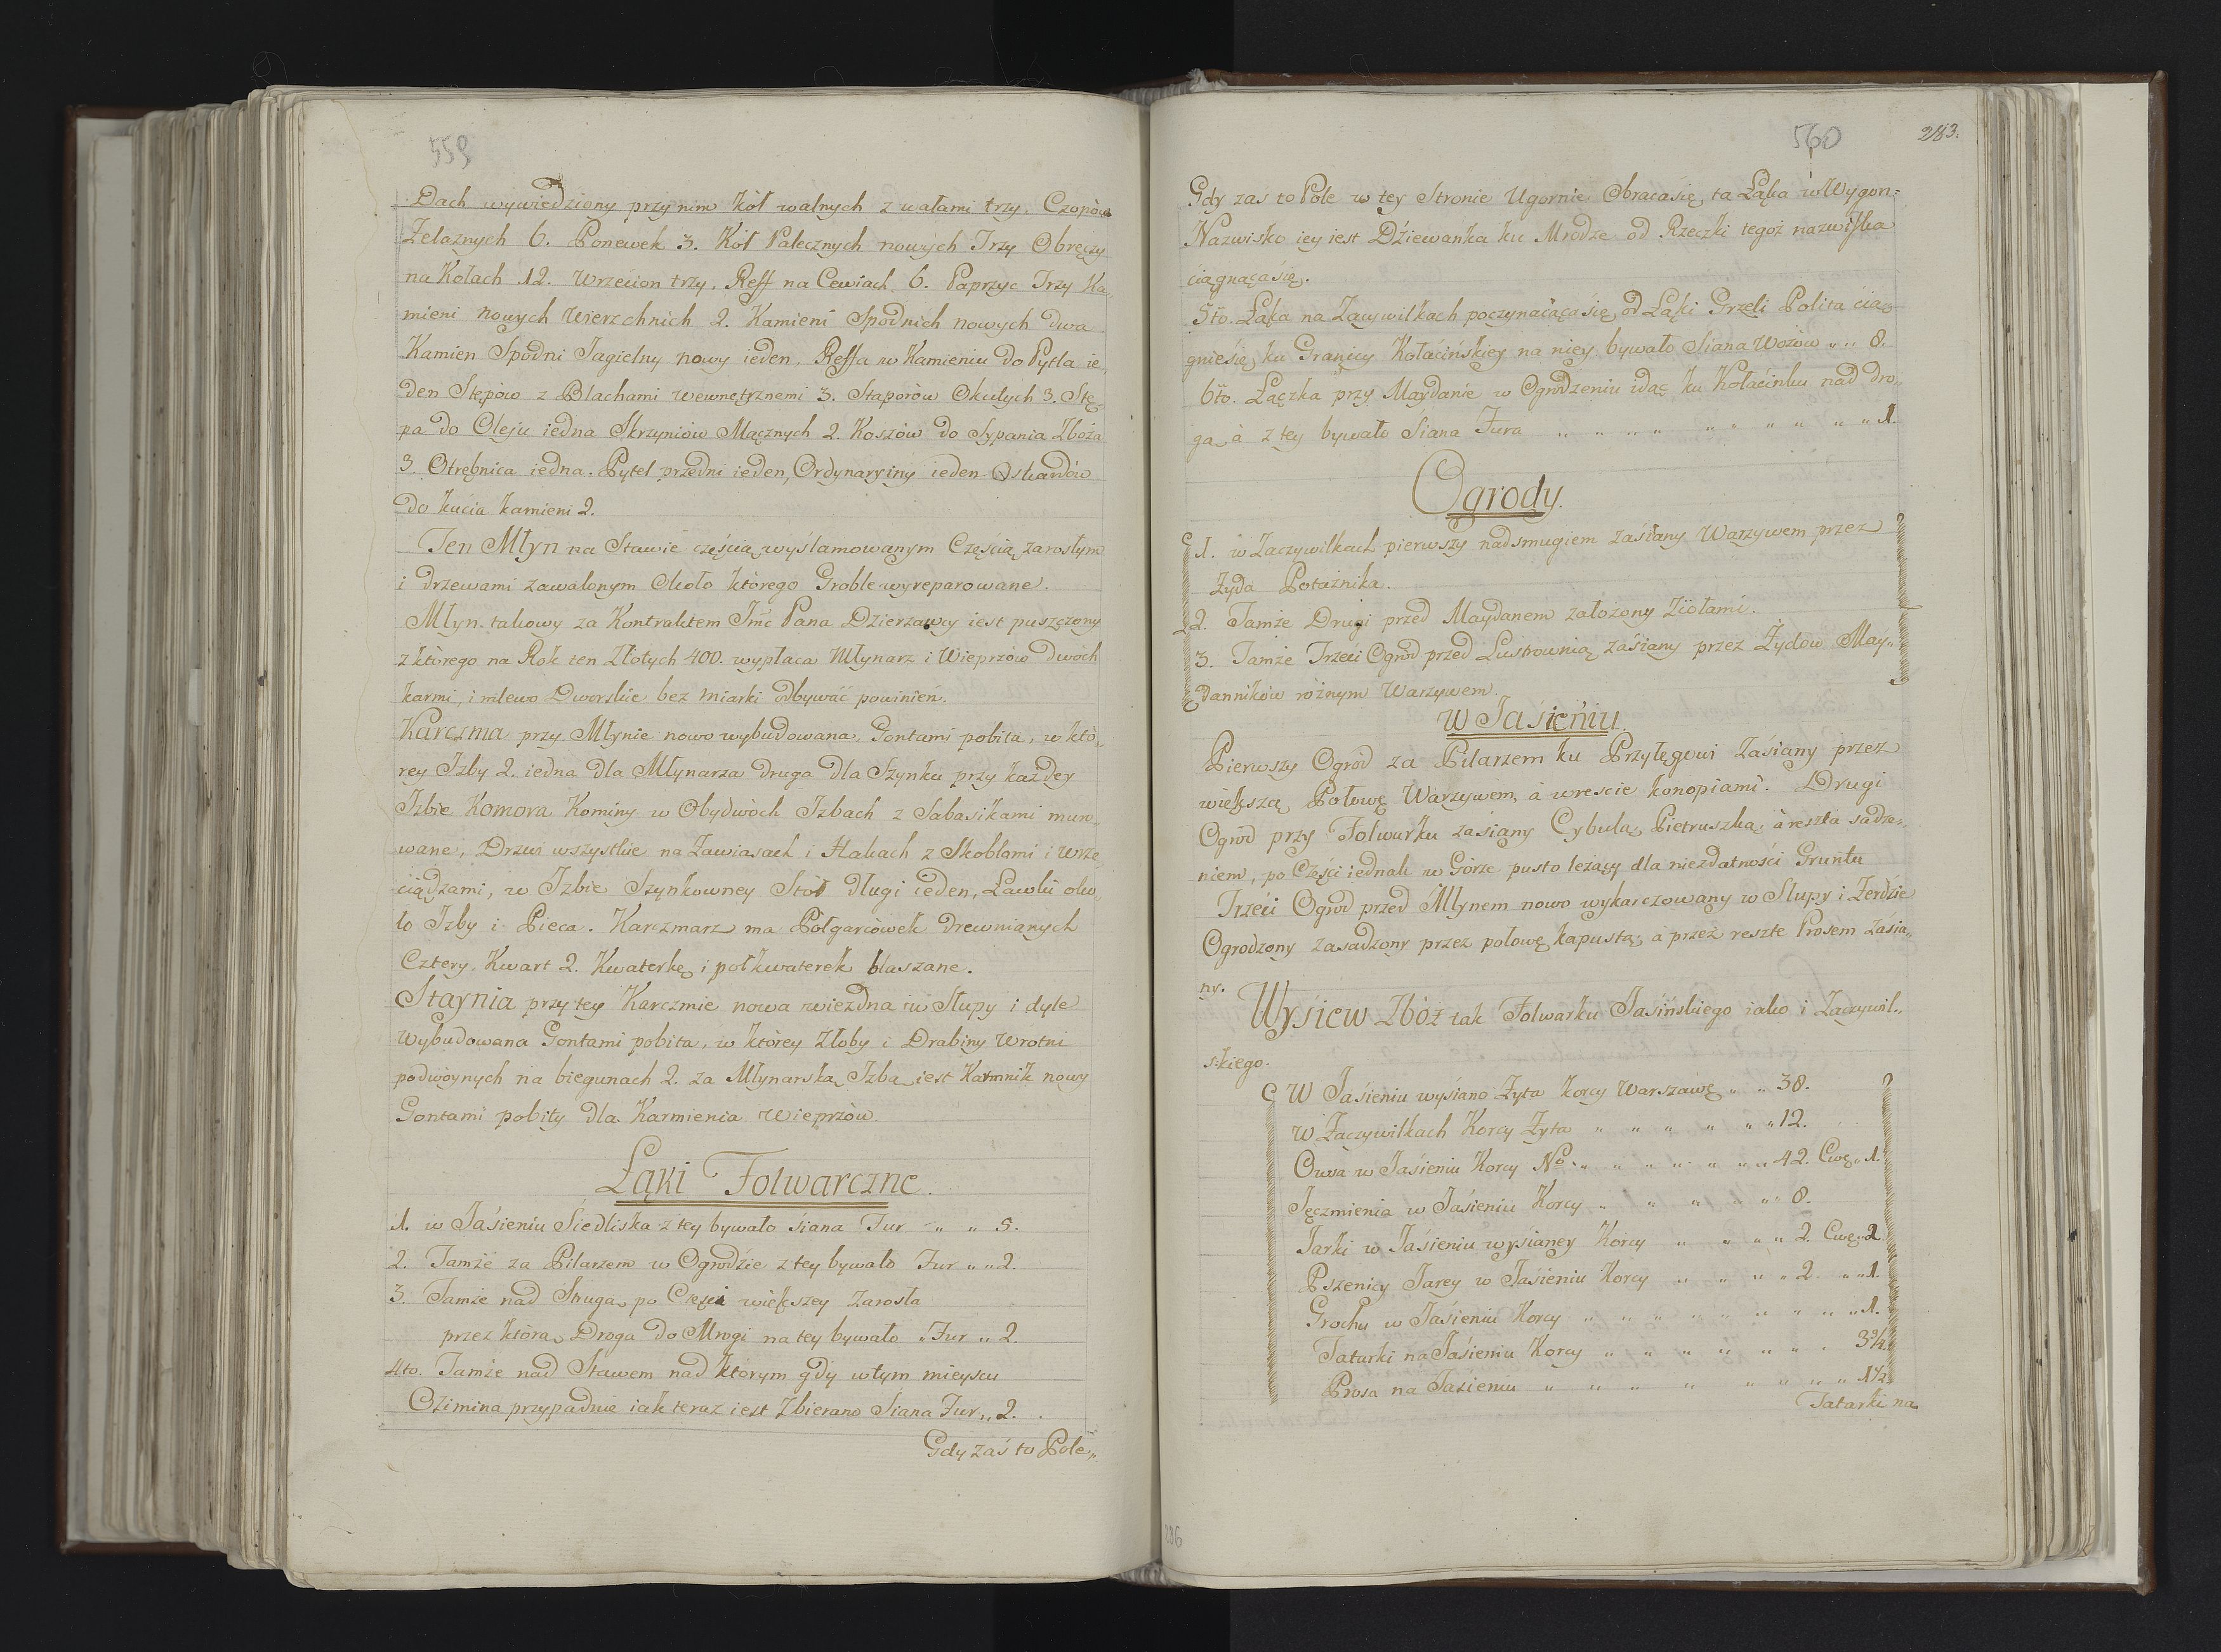 559
Dach wywiedziony przy nim kół walnych z wałami trzy. Czopów
Żelaznych 6. Ponewek 3. Kół Palecznych nowych Trzy Obręczy
na Kołach 12. Wrzecion trzy. Reff na Cewiach 6. Paprzyc Trzy Ka„
mieni nowych Wierzchnich 2. Kamieni Spodnich nowych dwa
Kamien Spodni Jagielny nowy ieden. Reffa w Kamieniu do Pytla ie„
den Stępów z Blachami wewnętrznemi 3. Stąporów Okutych 3. Stę„
pa do Oleju iedna Skrzyniów Mącznych 2. Koszów do Sypania Zboża
3. Otrębnica iedna. Pytel przedni ieden, Ordynaryiny ieden Oskardów
do kucia kamieni 2.
Ten Młyn na Stawie częścią wyślamowanym Częścią zarosłym
i drzewami zawalonym Około którego Groble wyreparowane.
Młyn takowy za Kontraktem Jmć Pana Dzierzawcy iest puszczony
z którego na Rok ten Złotych 400. wypłaca Młynarz i Wieprzów dwóch
karmi, i mlewo Dworskie bez miarki odbywać powinień.
Karczma przy Młynie nowo wybudowana, Gontami pobita, w któ„
rey Izby 2. iedna dla Młynarza druga dla Szynku przy każdey
Izbie Komora Kominy w Obydwóch Izbach z Sabasikami muro„
wane, Drzwi wszystkie na Zawiasach i Hakach z Skoblami i wrze„
ciądzami, w Izbie Szynkowney Stół długi ieden, Ławki oko„
ło Izby i Pieca. Karczmarz ma Półgarcówek drewnianych
Cztery, Kwart 2. Kwaterkę i połkwaterek blaszane.
Staynia przy tey Karczmie nowa wiezdna w Słupy i dyle
Wybudowana Gontami pobita, w którey Złoby i Drabiny Wrotni
podwóynych na biegunach 2. za Młynarską Izbą iest Karmnik nowy
Gontami pobity dla Karmienia Wieprzów.
Łąki Folwarczne.
1. w Jasieniu Siedliska z tey bywało siana Fur „ „ 5.
2. Tamże za Pilarzem w Ogrodzie z tey bywało Fur „ „ 2.
3. Tamże nad Strugą po Częsci większey Zarosła
przez którą Droga do Mrogi na tey bywało Fur „ 2.
4to. Tamże nad Stawem nad którym gdy w tym mieyscu
Ozimina przypadnie iak teraz iest Zbierano Siana Fur „ 2.
Gdy zaś to Pole„
560
283.
Gdy zaś to Pole w tey Stronie Ugornie Obraca się, ta Łąka w Wygon=
Nazwisko iey iest Dziewanka ku Mrodze od Rzeczki tegoż nazwiska
ciągnącą się.
5to. Łąka na Zaywilkach poczynaiąca się od Łąki Grzeli Polita ciąg„
gnie się ku Granicy Kołacińskiey na niey bywało Siana Wozów „ „ 8.
6to. Łączka przy Maydanie w Ogrodzeniu idąc ku Kołacinku nad dro„
gą à z tey bywało Siana Fura „ „ „ „ „ „ „ „ „ „ 1.
Ogrody.
1. w Zaczywilkach pierwszy nad smugiem zasiany Warzywem przez
Żyda Potażnika.
2. Tamże Drugi przed Maydanem założony Ziołami.
3. Tamże Trzeci Ogród przed Lustrownią zasiany przez Żydów May„
danników różnym Warzywem.
w Jasieniu.
Pierwszy Ogród za Pilarzem ku Przyłęgowi Zasiany przez
większą Połowę Warzywem, à wreście konopiami. Drugi
Ogród przy Folwarku zasiany Cybulą, Pietruszką, à reszta sadze„
niem, po Częsci iednak w Górze pusto leżący dla niezdatności Gruntu
Trzeci Ogród przed Młynem nowo wykarczowany w Słupy i Żerdzie
Ogrodzony zasadzony przez połowę kapustą, a przez resztę Prosem Zasia„
ny.
Wysiew Zbóż tak Folwarku Jasińskiego iako i Zaczywil„
skiego.
W Jasieniu wysiano Żyta korcy Warszawę „ „ 38.
W Zaczywilkach Korcy Żyta „ „ „ „ „ „ 12.
Owsa w Jasieniu Korcy No „ „ „ „ „ „ „ 42. Cwę „ 1.
Jęczmienia w Jasieniu Korcy „ „ „ „ „ 8.
Jarki w Jasieniu wysianey Korcy „ „ „ „ 2. Cwę „ 2
Pszenicy Jarey w Jasieniu Korcy „ „ „ „ 2. „ „ 1.
Grochu w Jasieniu Korcy „ „ „ „ „ „ „ „ „ 1.
Tatarki na Jasieniu Korcy „ „ „ „ „ „ „ 3¾.
Prosa na Jasieniu „ „ „ „ „ „ „ „ „ 1½
Tatarki na
286